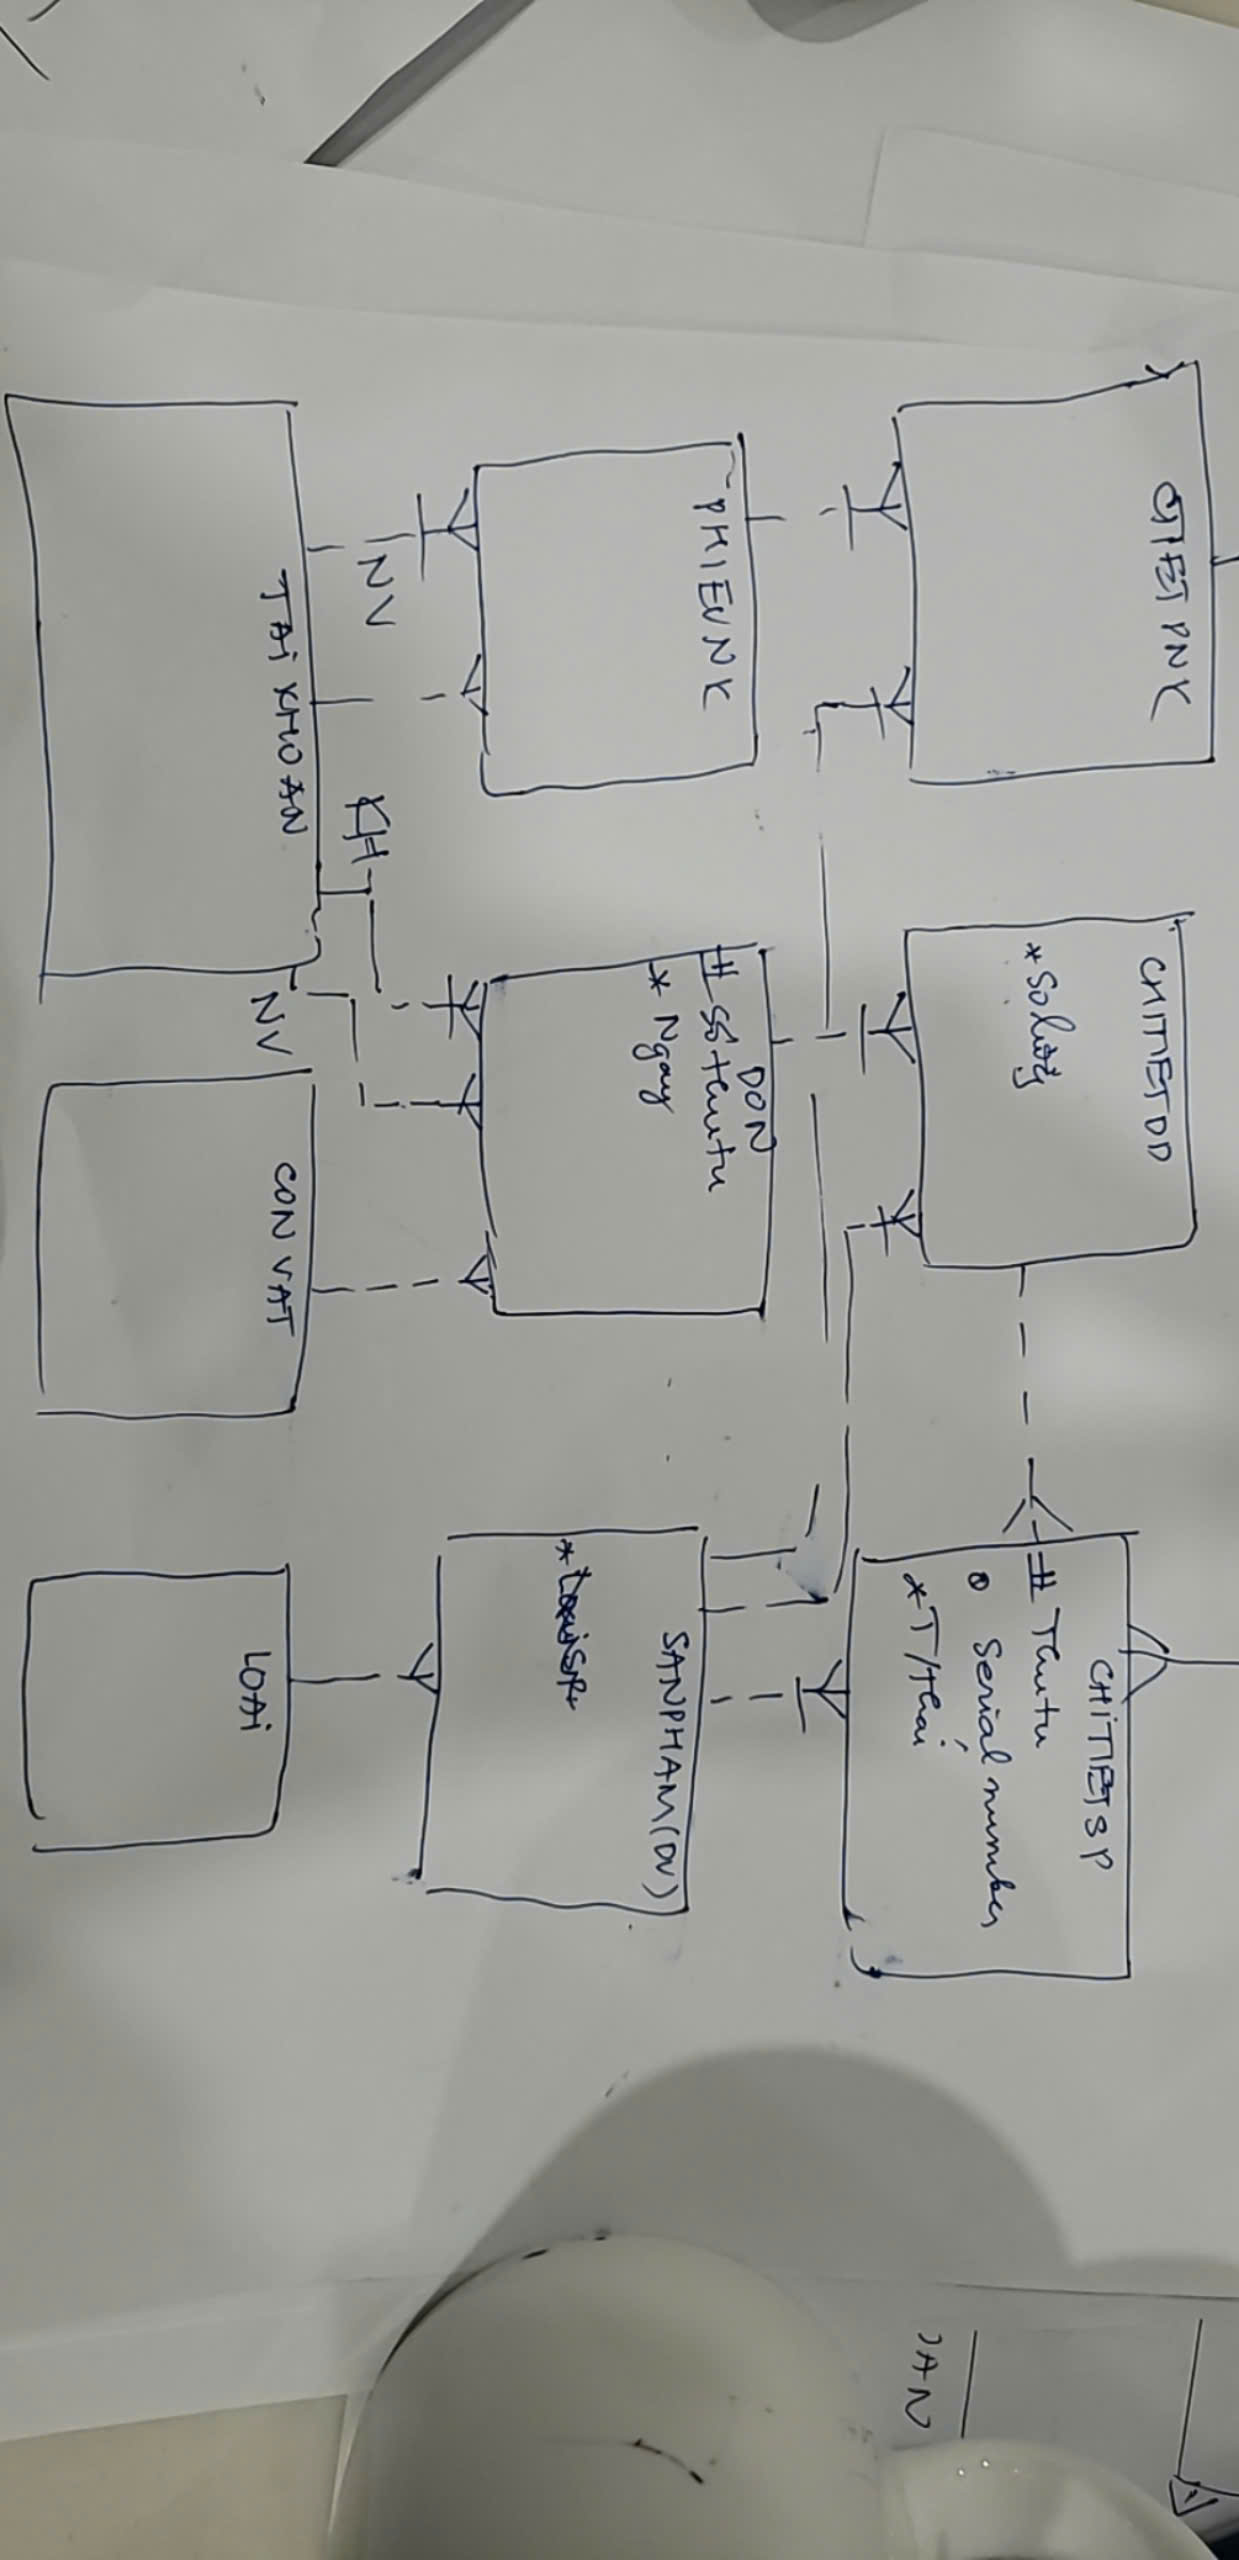 CTIET PNK
CHITIETDD
* Soluong
CHITIETSP
# Thutu
o Serial number
* T/thái
PHIEUNK
DON
# Số thutu
* Ngay
SANPHAM(DV)
* LoaiSP
NV
KH
NV
TAI KHOAN
CON VAT
LOAI